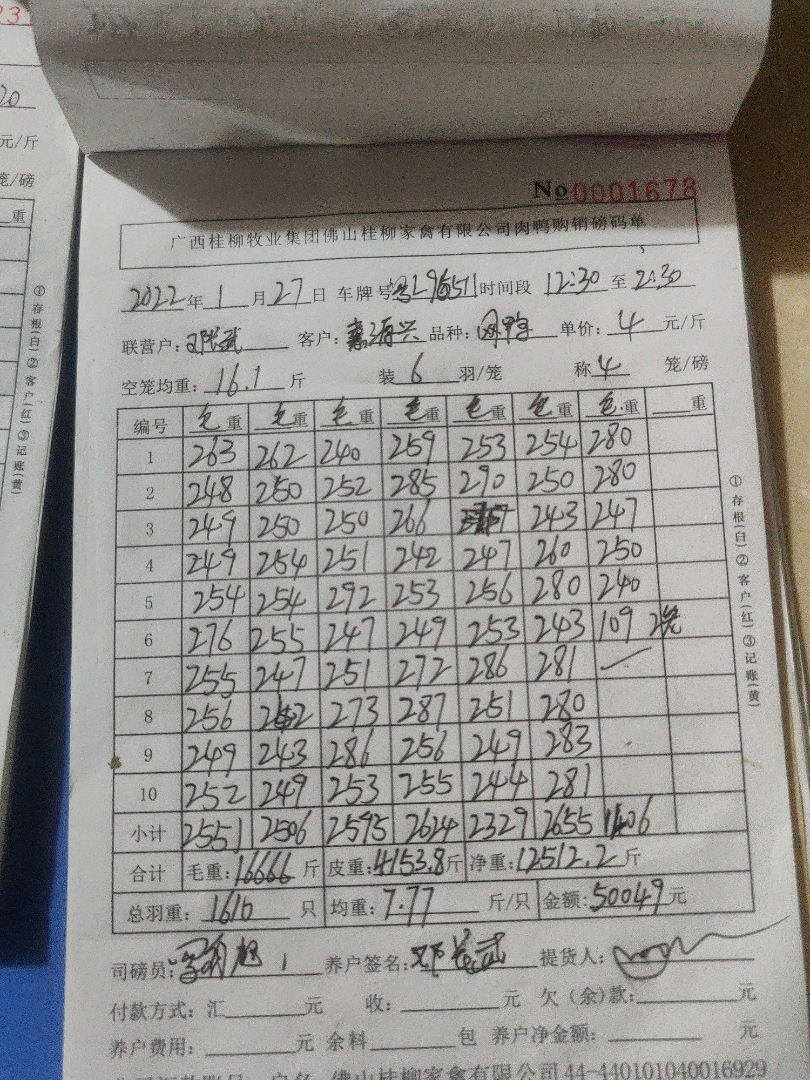 No 0001678
广西桂柳牧业集团佛山桂柳家禽有限公司肉鸭购销磅码单
2022年1月27日 车牌号 时间段 12:30 至 2:30
联营户: 客户: 品种: 单价: 4 元/斤
空笼均重: 16.1 斤 装 6 羽/笼 称 4 笼/磅
编号 毛重 毛重 毛重 毛重 毛重 毛重 毛重 重
1 263 262 240 259 253 254 280
2 248 250 252 285 290 250 280
3 249 250 250 266 243 247
4 249 254 251 242 247 260 250
5 254 254 292 253 256 280 240
6 276 255 247 249 253 243 109 2笼
7 255 247 251 272 286 281
8 256 242 273 287 251 280
9 249 243 286 256 249 283
10 252 249 253 255 244 281
小计 2551 2506 2595 2624 2329 2655 1406
合计 毛重: 16666 斤 皮重: 4153.8 斤 净重: 12512.2 斤
总羽重: 1610 只 均重: 7.77 斤/只 金额: 50049 元
司磅员: 养户签名: 提货人:
付款方式: 汇 元 收: 元 欠(余)款: 元
养户费用: 元 余料 包 养户净金额: 元
佛山桂柳家禽有限公司 44-440101040016929
①存根(白)②客户(红)③记账(黄)
20
元/斤
笼/磅
重
①存根(白)②客户(红)③记账(黄)